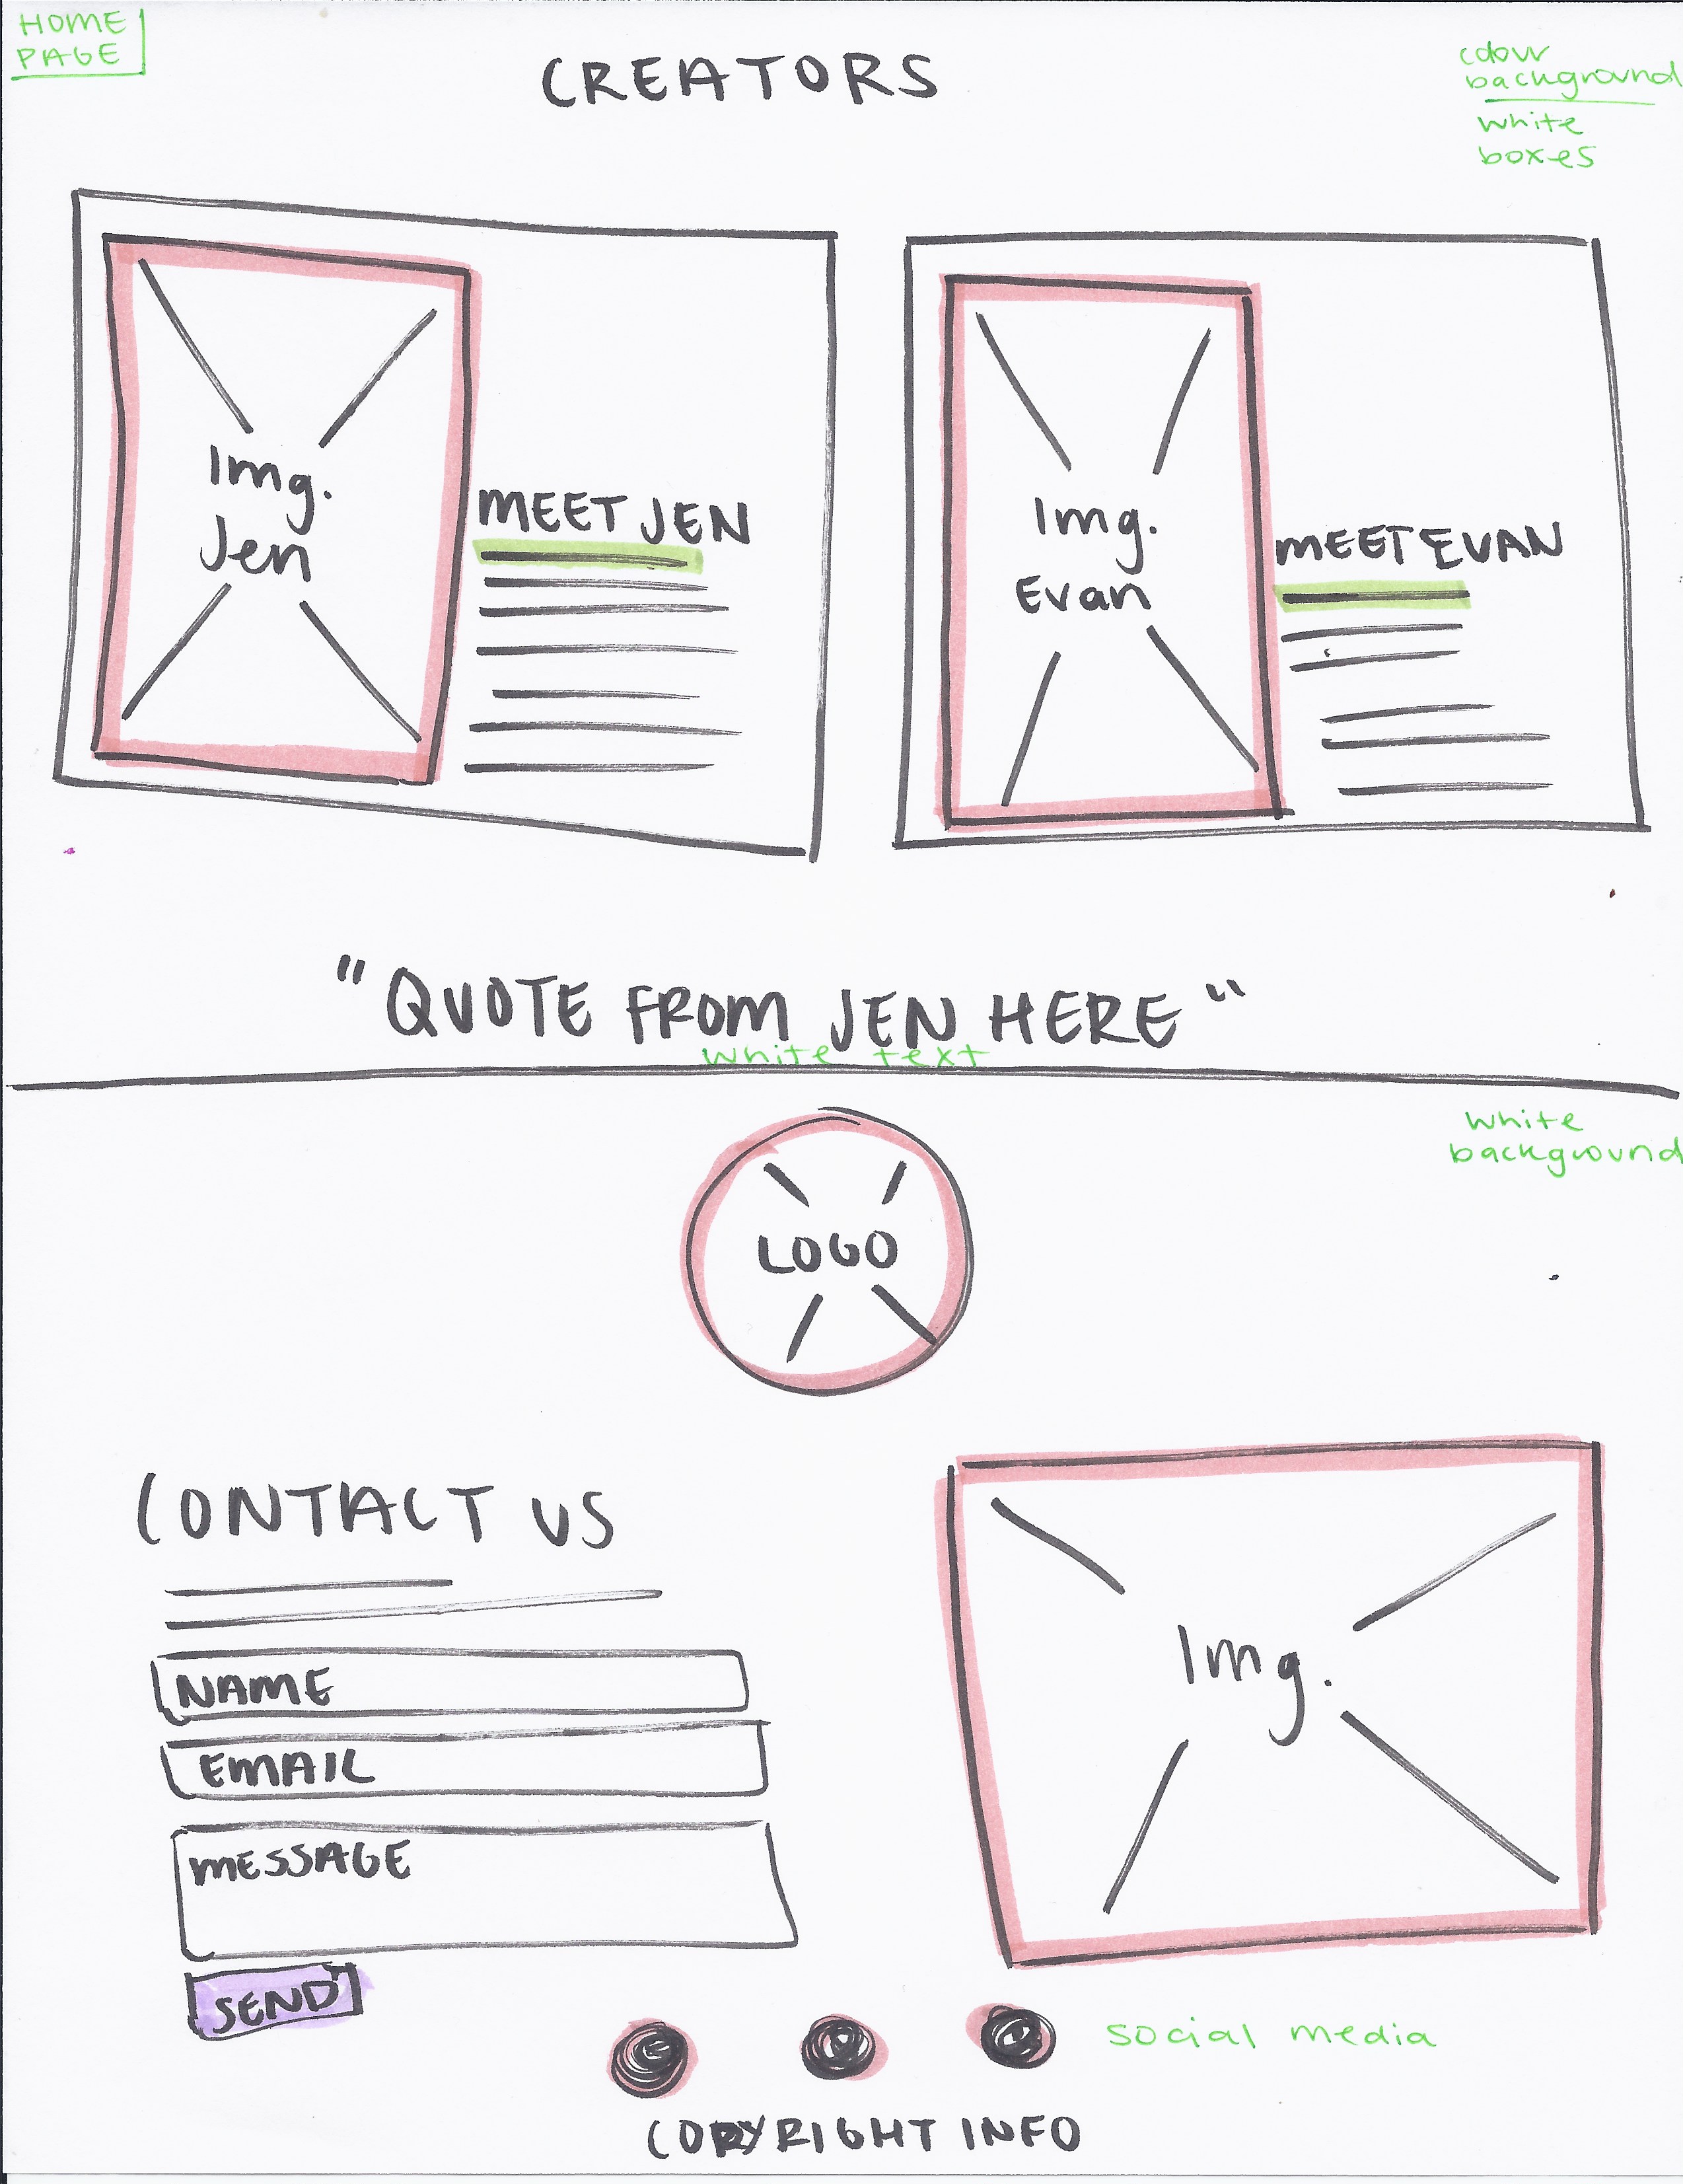 HOME
PAGE
CREATORS
colour
background
white
boxes
Img.
Jen
MEET JEN
Img.
Evan
MEET EVAN
"QUOTE FROM JEN HERE"
white text
white
background
LOGO
CONTACT US
NAME
EMAIL
MESSAGE
Img.
SEND
social media
COPYRIGHT INFO